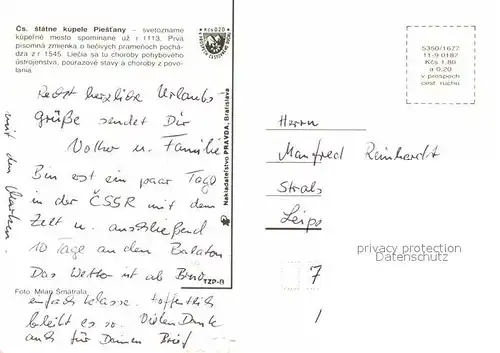 Čs. štátne kúpele Piešťany – svetoznáme
kúpeľné mesto spomínané už r. 1113. Prvá
písomná zmienka o liečivých prameňoch pochá-
dza z r. 1545. Liečia sa tu choroby pohybového
ústrojenstva, poúrazové stavy a choroby z povo-
lania.
Kčs 020
Recht herzliche Urlaubs-
grüße sendet Dir
Volker u. Familie
Bin erst ein paar Tage
in der ČSSR mit dem
Zelt u. anschließend
10 Tage an den Balaton
Das Wetter ist ab Brno
einfach klasse. Hoffentlich
bleibt es so. Vielen Dank
auch für Deinen Brief
mit den Marken.
Foto: Milan Šmatrala
TZP-B
Nakladateľstvo PRAVDA, Bratislava
5350/1627
11-9 0187
Kčs 1,80
a 0,20
v prospech
cest. ruchu
Herrn
Manfred Reinhardt
Strals
Leipz
7
privacy protection
Datenschutz